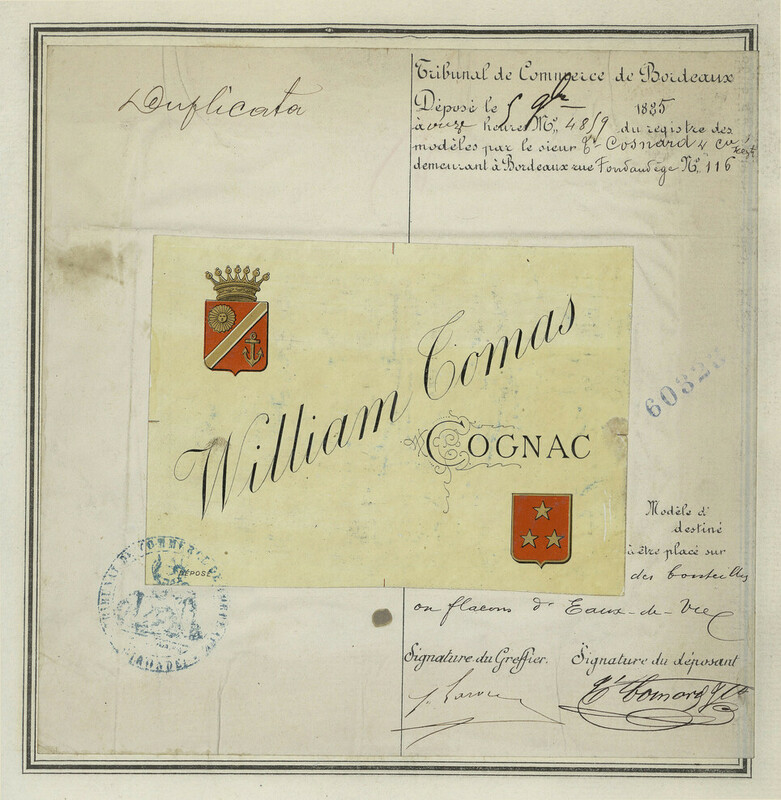 Duplicata
Tribunal de Commerce de Bordeaux
Déposé le 5 9bre 1885
à onze heures No. 4859 du registre des
modèles par le sieur
demeurant à Bordeaux rue Fondaudège No. 116
William Comas
COGNAC
60323
Modèle d'
destiné
à être placé sur
des bouteilles
DÉPOSÉ
TRIBUNAL DE COMMERCE DE BORDEAUX
GIRONDE
ou flacons d'Eaux-de-Vie
Signature du Greffier. Signature du déposant